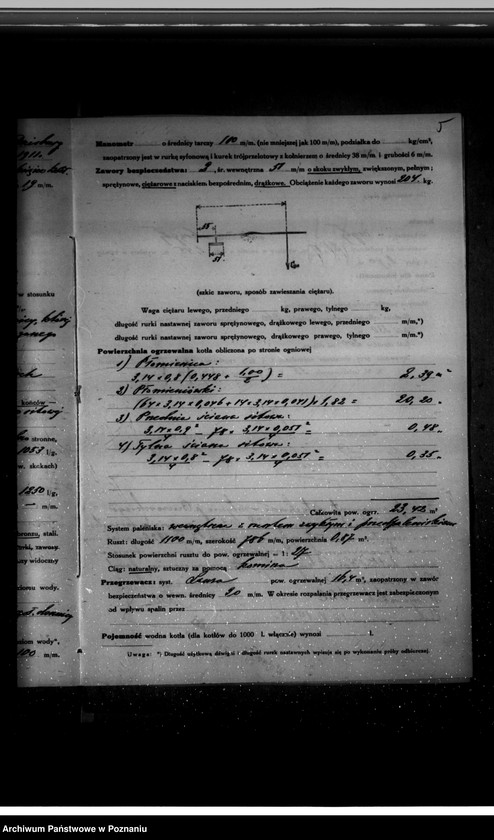 5
Manometr o średnicy tarczy 100 m/m. (nie mniejszej jak 100 m/m), podziałka do kg/cm²,
zaopatrzony jest w rurkę syfonową i kurek trójprzelotowy z kołnierzem o średnicy 38 m/m i grubości 6 m/m.
Zawory bezpieczeństwa: 2, śr. wewnętrzna 51 m/m o skoku zwykłym, zwiększonym, pełnym;
sprężynowe, ciężarowe z naciskiem bezpośrednim, drążkowe. Obciążenie każdego zaworu wynosi 204 kg.
55
51
(szkic zaworu, sposób zawieszania ciężaru).
Waga ciężaru lewego, przedniego kg, prawego, tylnego kg,
długość rurki nastawnej zaworu sprężynowego, drążkowego lewego, przedniego m/m,*)
długość rurki nastawnej zaworu sprężynowego, drążkowego prawego, tylnego m/m,*)
Powierzchnia ogrzewalna kotła obliczona po stronie ogniowej
1) Płomienica:
3,14 × 0,8 (0,448 + ) = 2,39 m²
2) Płomieniówki:
(64 × 3,14 × 0,046 + 14 × 3,14 × 0,041) × 1,82 = 20,20 "
3) Przednia ściana sitowa:
3,14 × 0,9² − 78 × 3,14 × 0,051² = 0,48 "
4 4
4) Tylna ściana sitowa:
3,14 × 0,8² − 78 × 3,14 × 0,051² = 0,35 "
4 4
Całkowita pow. ogrz. 23,42 m²
System paleniska: wewnętrzne z rusztem zwykłym i
Ruszt: długość 1100 m/m, szerokość 786 m/m, powierzchnia 0,87 m².
Stosunek powierzchni rusztu do pow. ogrzewalnej = 1: 27
Ciąg: naturalny, sztuczny za pomocą komina
Przegrzewacz: syst. pow. ogrzewalnej 16,4 m², zaopatrzony w zawór
bezpieczeństwa o wewn. średnicy 20 m/m. W okresie rozpalania przegrzewacz jest zabezpieczonym
od wpływu spalin przez
Pojemność wodna kotła (dla kotłów do 1000 l. włącznie) wynosi l.
Uwaga: *) Długość użytkową dźwigni i długość rurek nastawnych wpisuje się po wykonaniu próby odbiorczej.
1911.
19 m/m.
w stosunku
kotłów —
stronne,
1053 l/g,
w. skokach)
1250 l/g,
— m/m.
bronzu, stali.
rki, zawory.
ny widoczny
ziomu wody.
ziom wody*.
100 m/m.
Archiwum Państwowe w Poznaniu